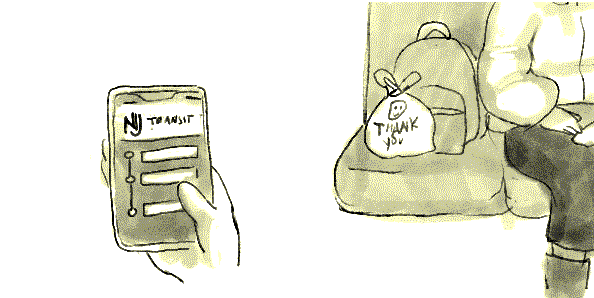 NJ TRANSIT
THANK
YOU